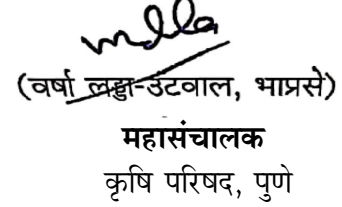 (वर्षा लड्डा-उंटवाल, भाप्रसे)
महासंचालक
कृषि परिषद, पुणे